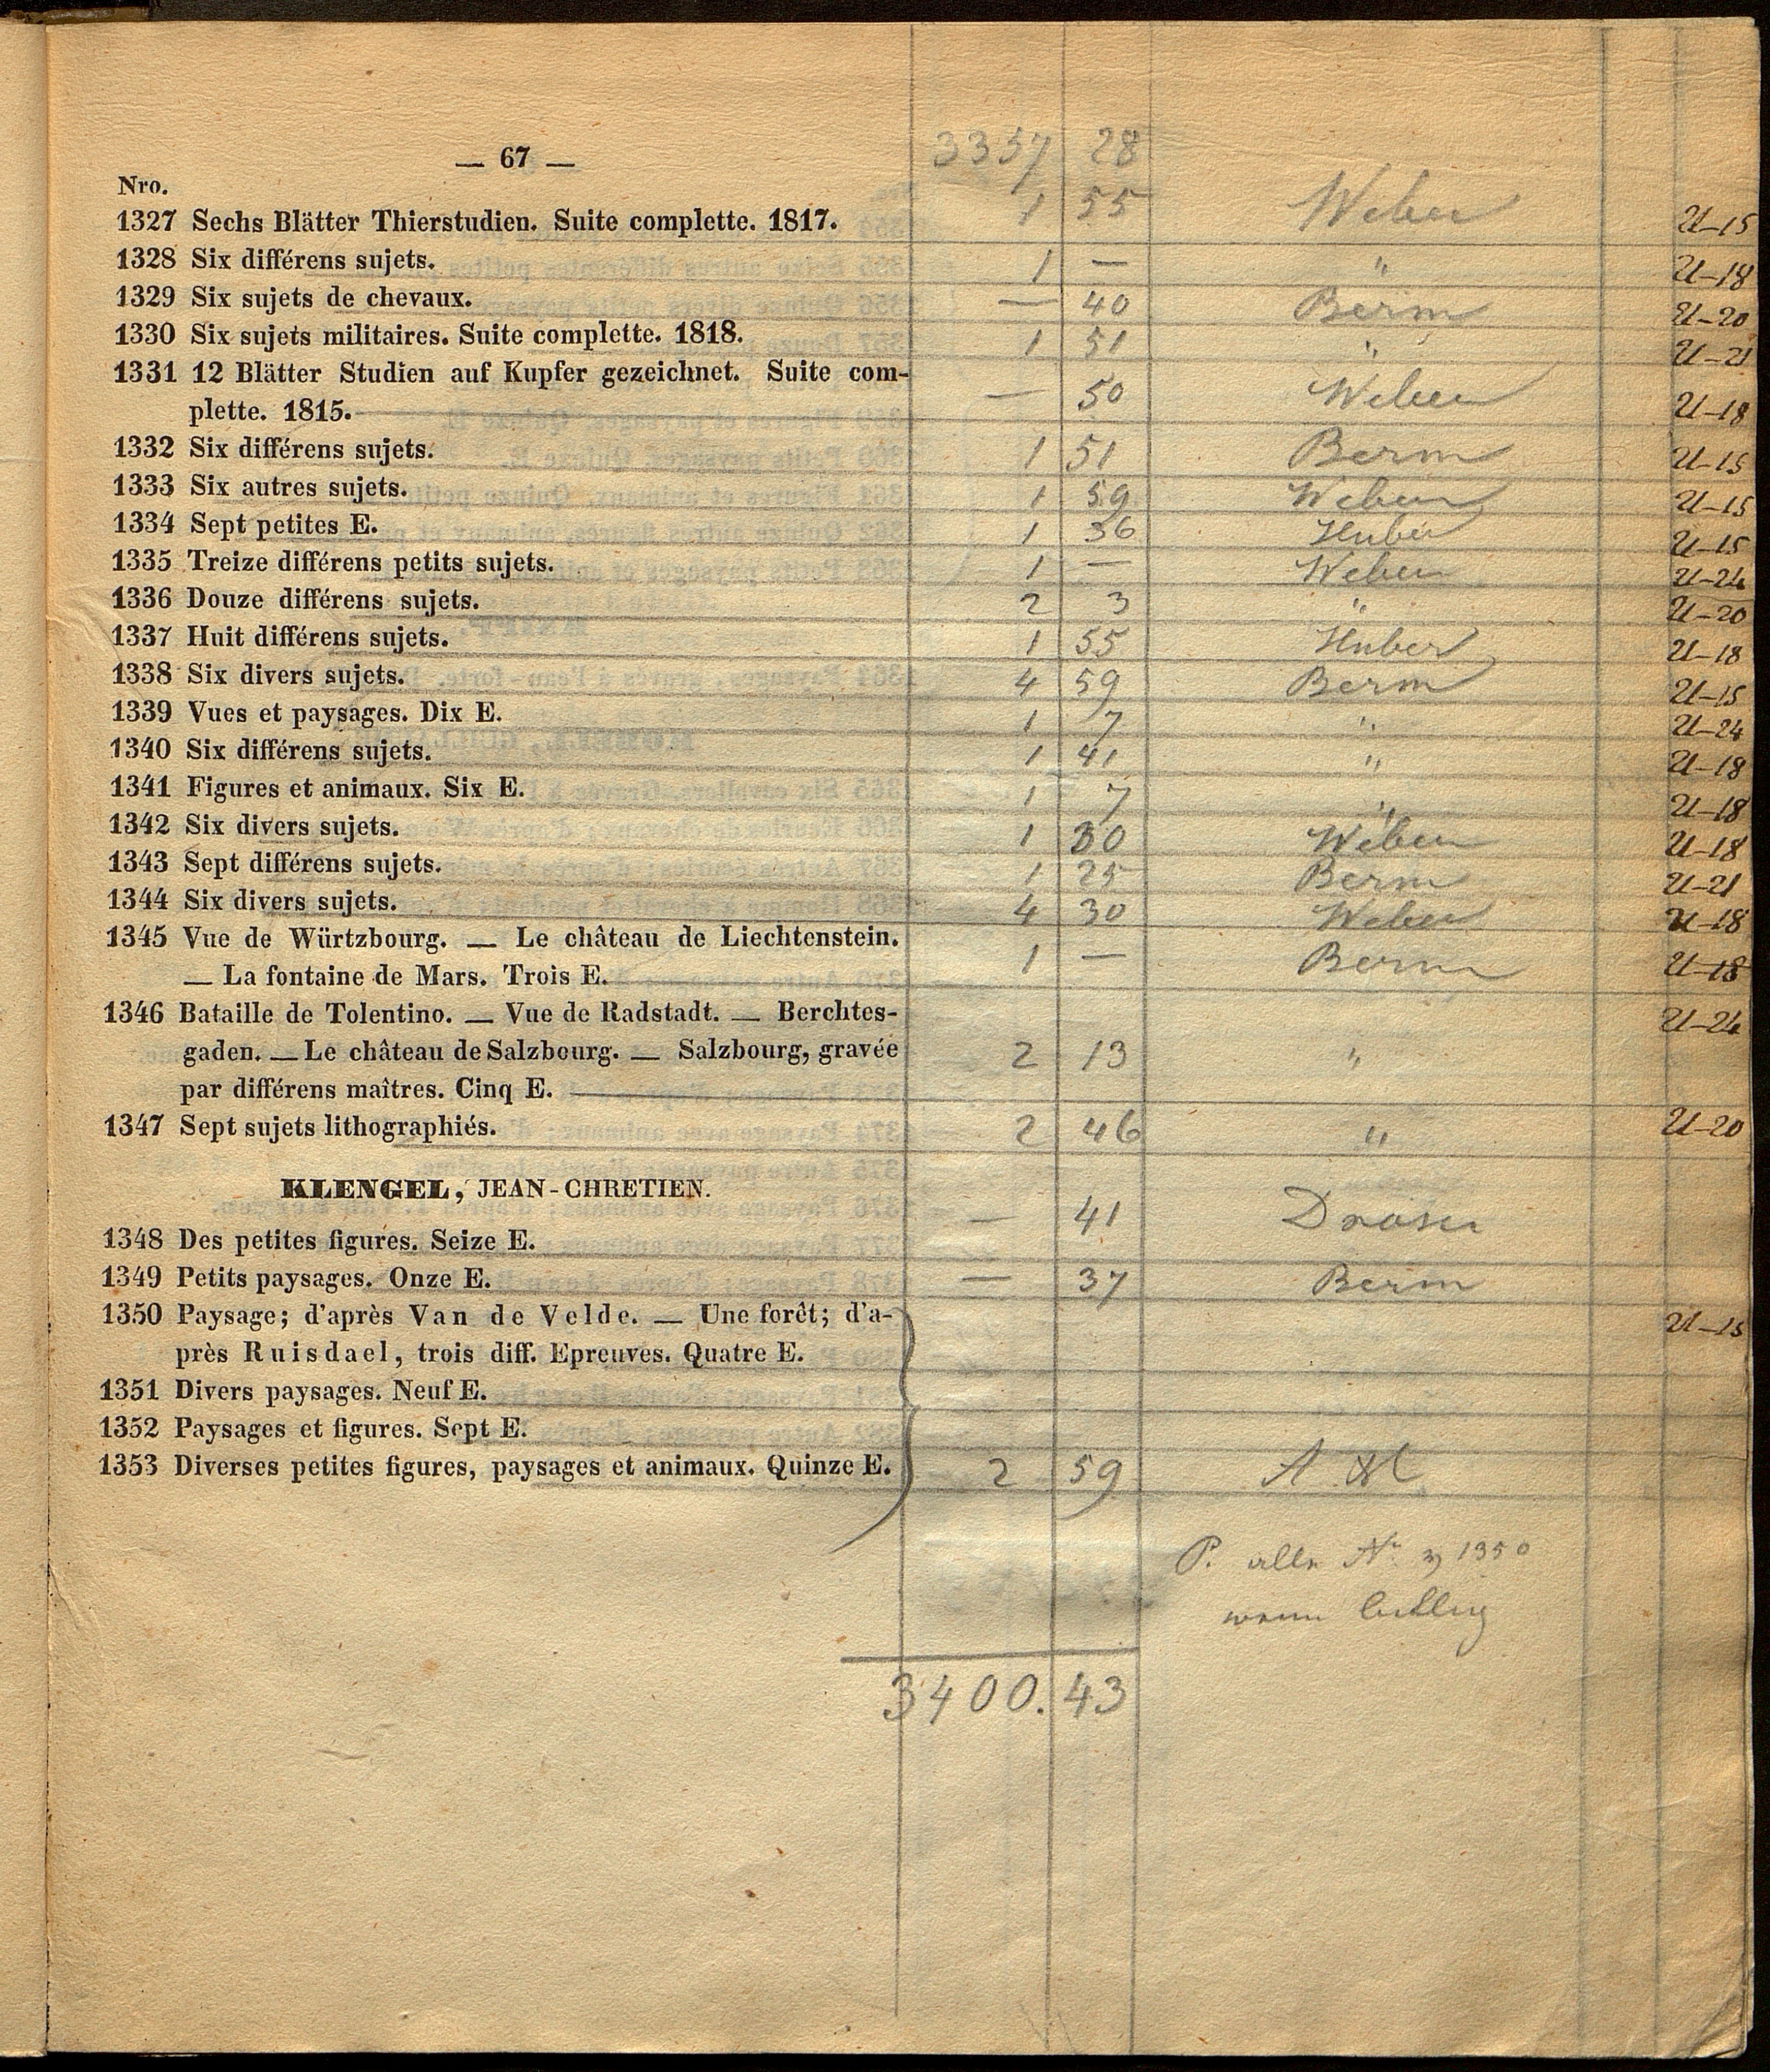 — 67 —
3357 28
Nro.
1327 Sechs Blätter Thierstudien. Suite complette. 1817. 1 55 Weber U—15
1328 Six différens sujets. 1 — " U—18
1329 Six sujets de chevaux. — 40 Berm U—20
1330 Six sujets militaires. Suite complette. 1818. 1 51 " U—21
1331 12 Blätter Studien auf Kupfer gezeichnet. Suite com-
plette. 1815. — 50 Weber U—18
1332 Six différens sujets. 1 51 Berm U—15
1333 Six autres sujets. 1 59 Weber U—15
1334 Sept petites E. 1 36 Huber U—15
1335 Treize différens petits sujets. 1 — Weber U—24
1336 Douze différens sujets. 2 3 " U—20
1337 Huit différens sujets. 1 55 Huber U—18
1338 Six divers sujets. 4 59 Berm U—15
1339 Vues et paysages. Dix E. 1 7 " U—24
1340 Six différens sujets. 1 41 " U—18
1341 Figures et animaux. Six E. 1 7 " U—18
1342 Six divers sujets. 1 30 Weber U—18
1343 Sept différens sujets. 1 25 Berm U—21
1344 Six divers sujets. 4 30 Weber U—18
1345 Vue de Würtzbourg. — Le château de Liechtenstein.
— La fontaine de Mars. Trois E. 1 — Berm U—18
1346 Bataille de Tolentino. — Vue de Radstadt. — Berchtes- U—24
gaden. — Le château de Salzbourg. — Salzbourg, gravée 2 13 "
par différens maîtres. Cinq E.
1347 Sept sujets lithographiés. 2 46 " U—20
KLENGEL, JEAN-CHRETIEN.
1348 Des petites figures. Seize E. — 41
1349 Petits paysages. Onze E. — 37 Berm
1350 Paysage; d'après Van de Velde. — Une forêt; d'a- U—15
près Ruisdael, trois diff. Epreuves. Quatre E.
1351 Divers paysages. Neuf E.
1352 Paysages et figures. Sept E.
1353 Diverses petites figures, paysages et animaux. Quinze E. 2 59
P. alle Nr. 1350
wenn billig
3400. 43